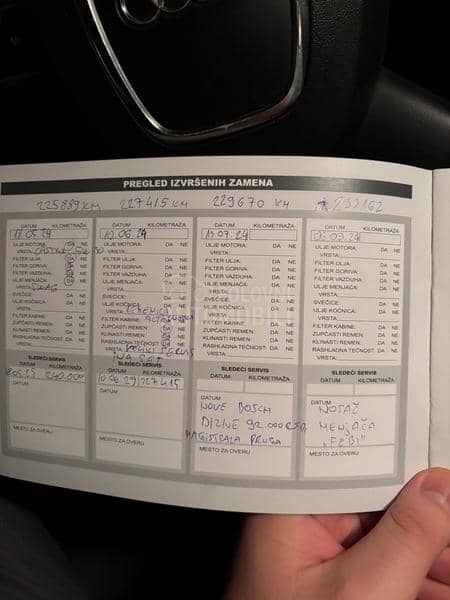 PREGLED IZVRŠENIH ZAMENA
225889 KM 227415 KM 229670 KM 
DATUM KILOMETRAŽA
18.05.24
ULJE MOTORA: DA NE
VRSTA:
FILTER ULJA: DA NE
FILTER GORIVA: DA NE
FILTER VAZDUHA: DA NE
ULJE MENJAČA DA NE
VRSTA:
SVEĆICE: DA NE
ULJE KOČNICA: DA NE
VRSTA:
FILTER KABINE: DA NE
ZUPČASTI REMEN: DA NE
KLINASTI REMEN: DA NE
RASHLADNA TEČNOST: DA NE
VRSTA:
SLEDEĆI SERVIS
DATUM KILOMETRAŽA
240.000
DATUM
MESTO ZA OVERU
DATUM KILOMETRAŽA
10.06.24
ULJE MOTORA: DA NE
VRSTA:
FILTER ULJA: DA NE
FILTER GORIVA: DA NE
FILTER VAZDUHA: DA NE
ULJE MENJAČA: DA NE
VRSTA:
SVEĆICE: DA NE
ULJE KOČNICA: DA NE
VRSTA:
FILTER KABINE: DA NE
ZUPČASTI REMEN: DA NE
KLINASTI REMEN: DA NE
RASHLADNA TEČNOST: DA NE
VRSTA: VELIKI SERVIS
NA SET
SLEDEĆI SERVIS
DATUM KILOMETRAŽA
10.06.29 227415
DATUM
MESTO ZA OVERU
DATUM KILOMETRAŽA
13.07.24
ULJE MOTORA: DA NE
VRSTA:
FILTER ULJA: DA NE
FILTER GORIVA: DA NE
FILTER VAZDUHA: DA NE
ULJE MENJAČA: DA NE
VRSTA:
SVEĆICE: DA NE
ULJE KOČNICA: DA NE
VRSTA:
FILTER KABINE: DA NE
ZUPČASTI REMEN: DA NE
KLINASTI REMEN: DA NE
RASHLADNA TEČNOST: DA NE
VRSTA:
SLEDEĆI SERVIS
DATUM KILOMETRAŽA
DATUM
NOVE BOSCH
DIZNE 92.000 RSD,
MAGISTRALA PRUGA
MESTO ZA OVERU
DATUM KILOMETRAŽA
ULJE MOTORA: DA NE
VRSTA:
FILTER ULJA: DA NE
FILTER GORIVA: DA NE
FILTER VAZDUHA: DA NE
ULJE MENJAČA: DA NE
VRSTA:
SVEĆICE: DA NE
ULJE KOČNICA: DA NE
VRSTA:
FILTER KABINE: DA NE
ZUPČASTI REMEN: DA NE
KLINASTI REMEN: DA NE
RASHLADNA TEČNOST: DA NE
VRSTA:
SLEDEĆI SERVIS
DATUM KILOMETRAŽA
DATUM
NOSAČ
MENJAČA
"FEBI"
MESTO ZA OVERU